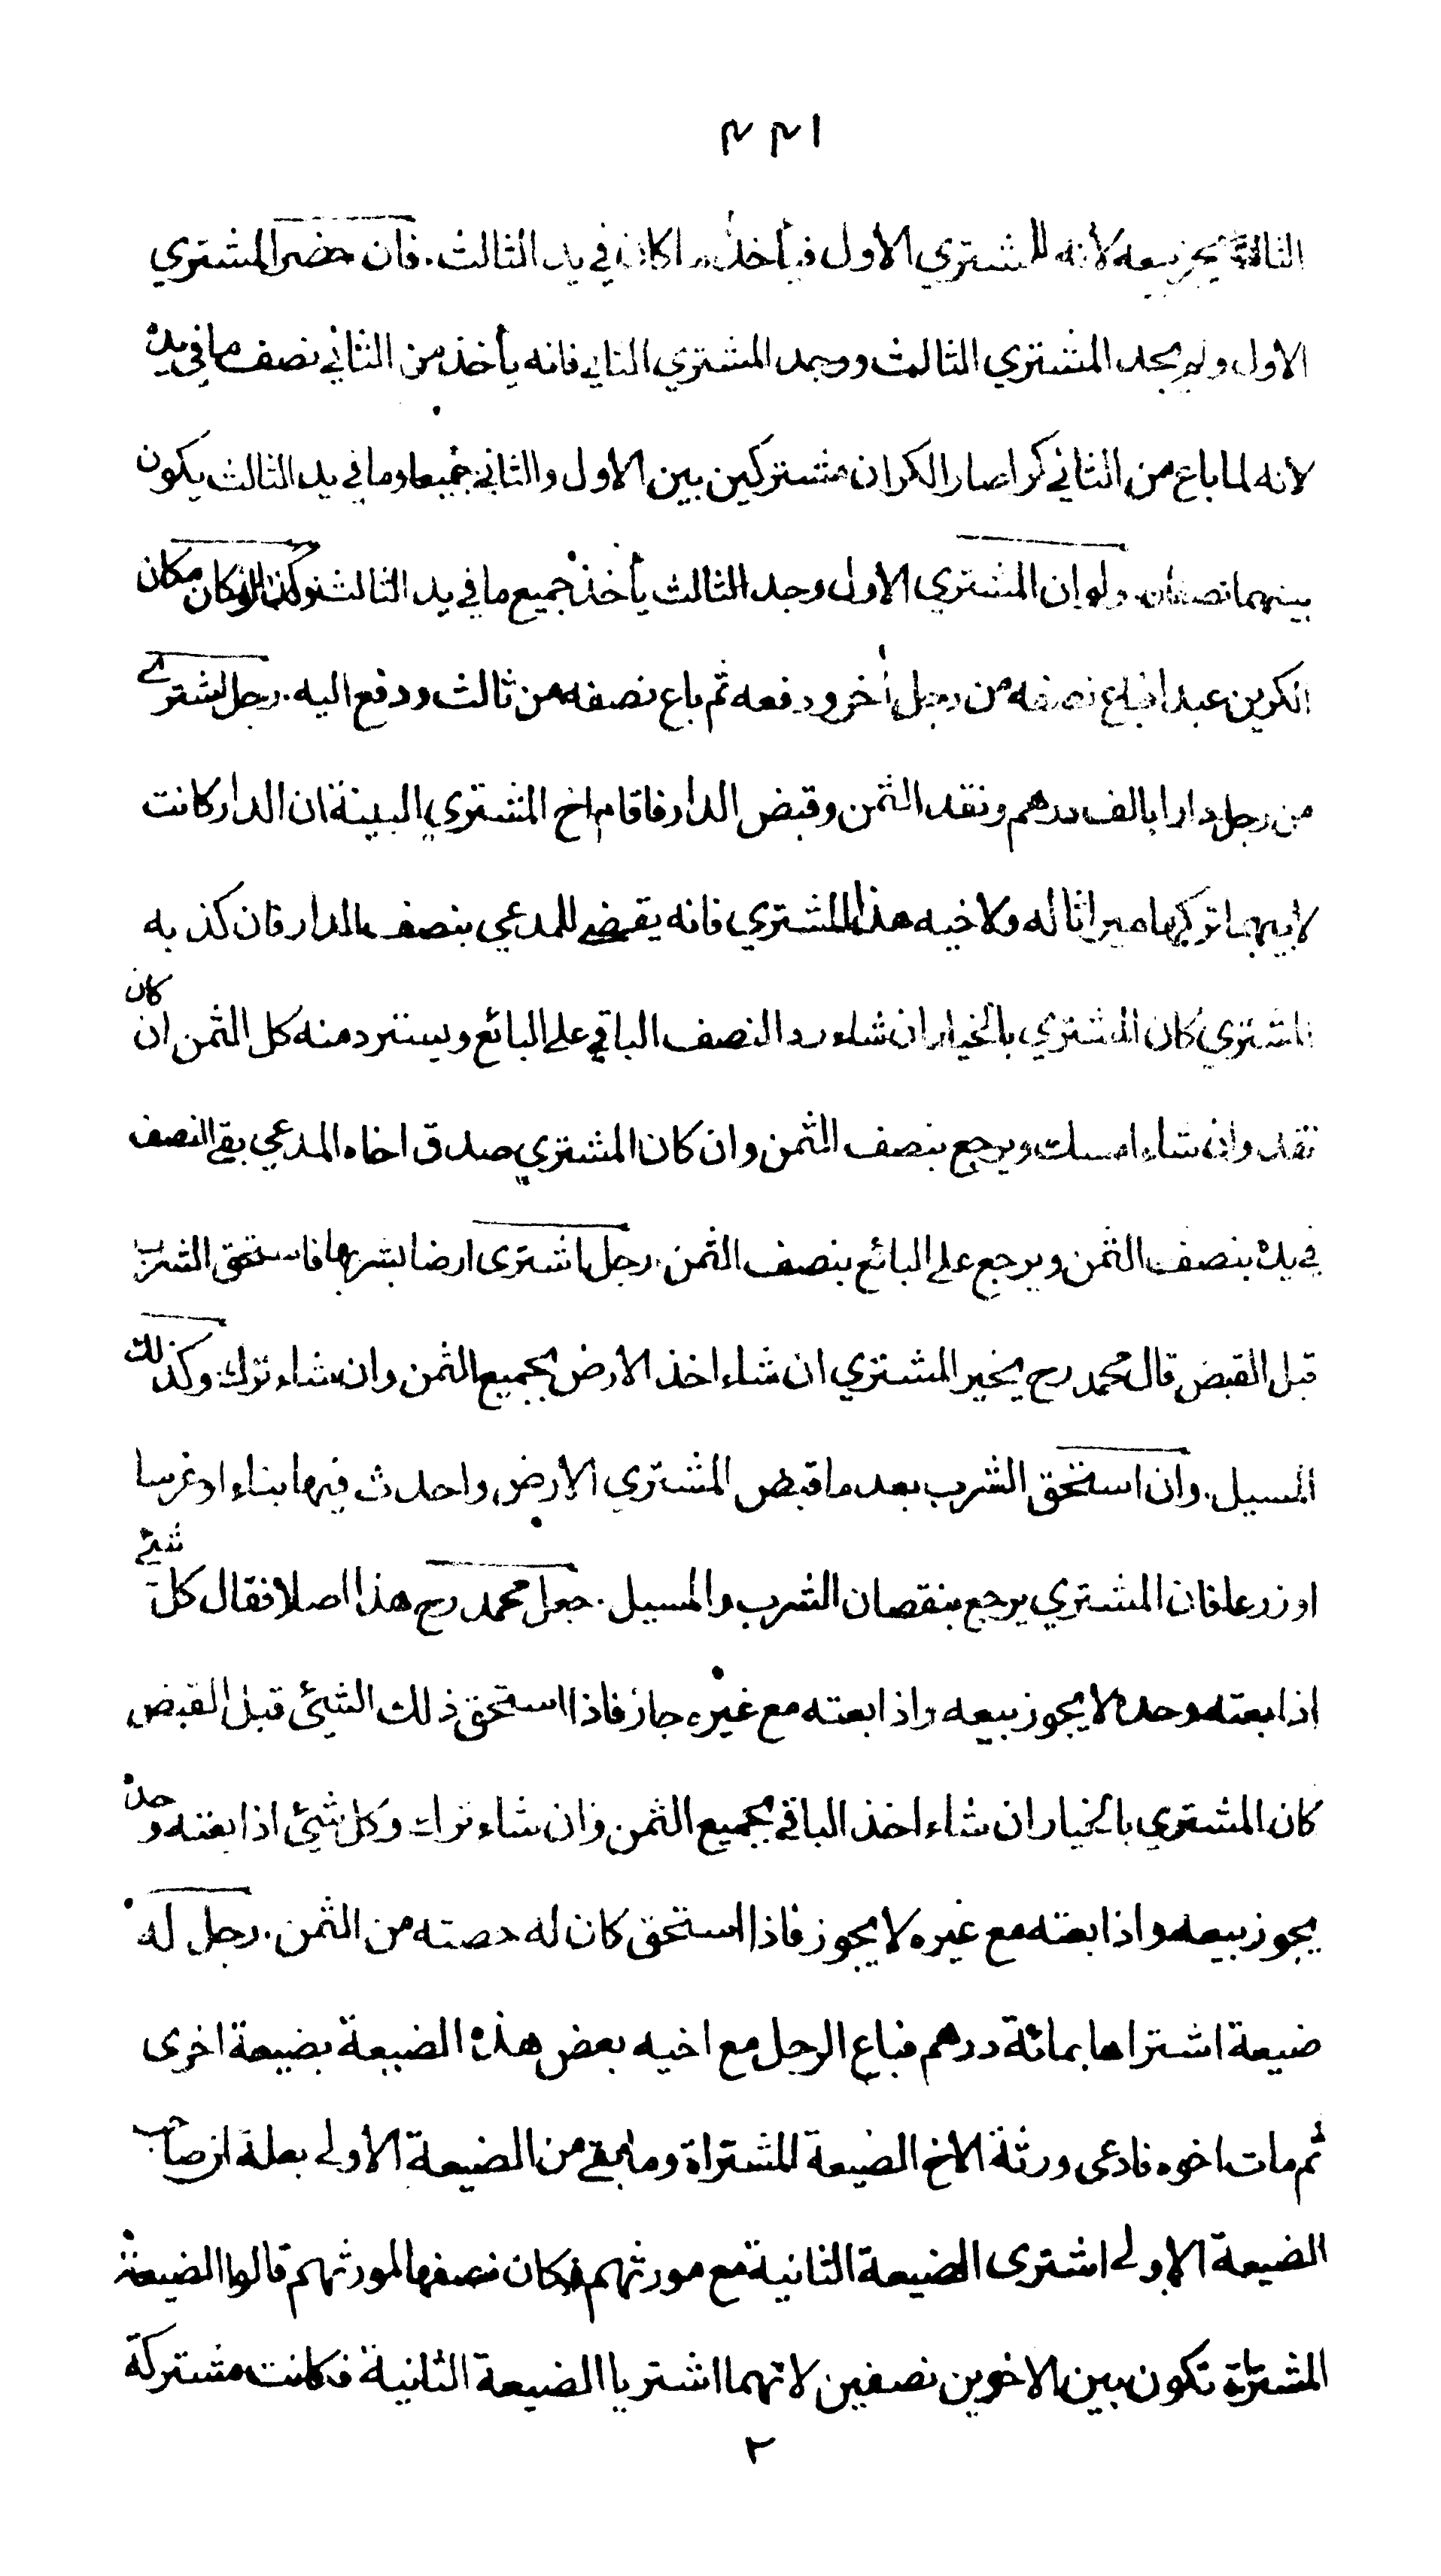 ٤٤١
الثالث يجز بيعه لانه للمشتري الاول فيأخذ ما كان في يد الثالث. فان حضر المشتري
الاول ولم يجد المشتري الثالث ووجد المشتري الثاني فانه يأخذ من الثاني نصف ما في يده
لانه لما باع من الثاني كرا صار الكران مشتركين بين الاول والثاني جميعا وما في يد الثالث يكون
بينهما نصفان. ولو ان المشتري الاول وجد الثالث يأخذ جميع ما في يد الثالث وكذا لو كان مكان
الكرين عبد افباع نصفه من رجل أخر ودفعه ثم باع نصفه من ثالث ودفع اليه. رجل اشترى
من رجل دارا بالف درهم ونقد الثمن وقبض الدار فاقام اخ المشتري البينة ان الدار كانت
لابيهما تركها ميراثا له ولاخيه هذا المشتري فانه يقضى للمدعي بنصف الدار فان كذبه
المشتري كان المشتري بالخيار ان شاء رد النصف الباقي على البائع ويسترد منه كل الثمن ان كان
نقد وان شاء امسك ويرجع بنصف الثمن وان كان المشتري صدق اخاه المدعي بقي النصف
في يده بنصف الثمن ويرجع على البائع بنصف الثمن. رجل اشترى ارضا بشربها فاستحق الشرب
قبل القبض قال محمد رح يخير المشتري ان شاء اخذ الارض بجميع الثمن وان شاء ترك وكذلك
المسيل. وان استحق الشرب بعد ما قبض المشتري الارض واحدث فيها بناء او غرسا
او زرعا فان المشتري يرجع بنقصان الشرب والمسيل. جعل محمد رح هذا اصلا فقال كل شئ
اذا بعته وحده لا يجوز بيعه واذا بعته مع غيره جاز فاذا استحق ذلك الشيئ قبل القبض
كان المشتري بالخيار ان شاء اخذ الباقي بجميع الثمن وان شاء ترك وكل شيئ اذا بعته وحده
يجوز بيعه واذا بعته مع غيره لا يجوز فاذا استحق كان له حصته من الثمن. رجل له
ضيعة اشتراها بمائة درهم فباع الرجل مع اخيه بعض هذه الضيعة بضيعة اخرى
ثم مات اخوه فادعى ورثة الاخ الضيعة المشتراة وما بقي من الضيعة الاولى بعلة ان صاحب
الضيعة الاولى اشترى الضيعة الثانية مع مورثهم فكان نصفها لمورثهم قالوا الضيعة
المشتراة تكون بين الاخوين نصفين لانهما اشتريا الضيعة الثانية فكانت مشتركة
٢